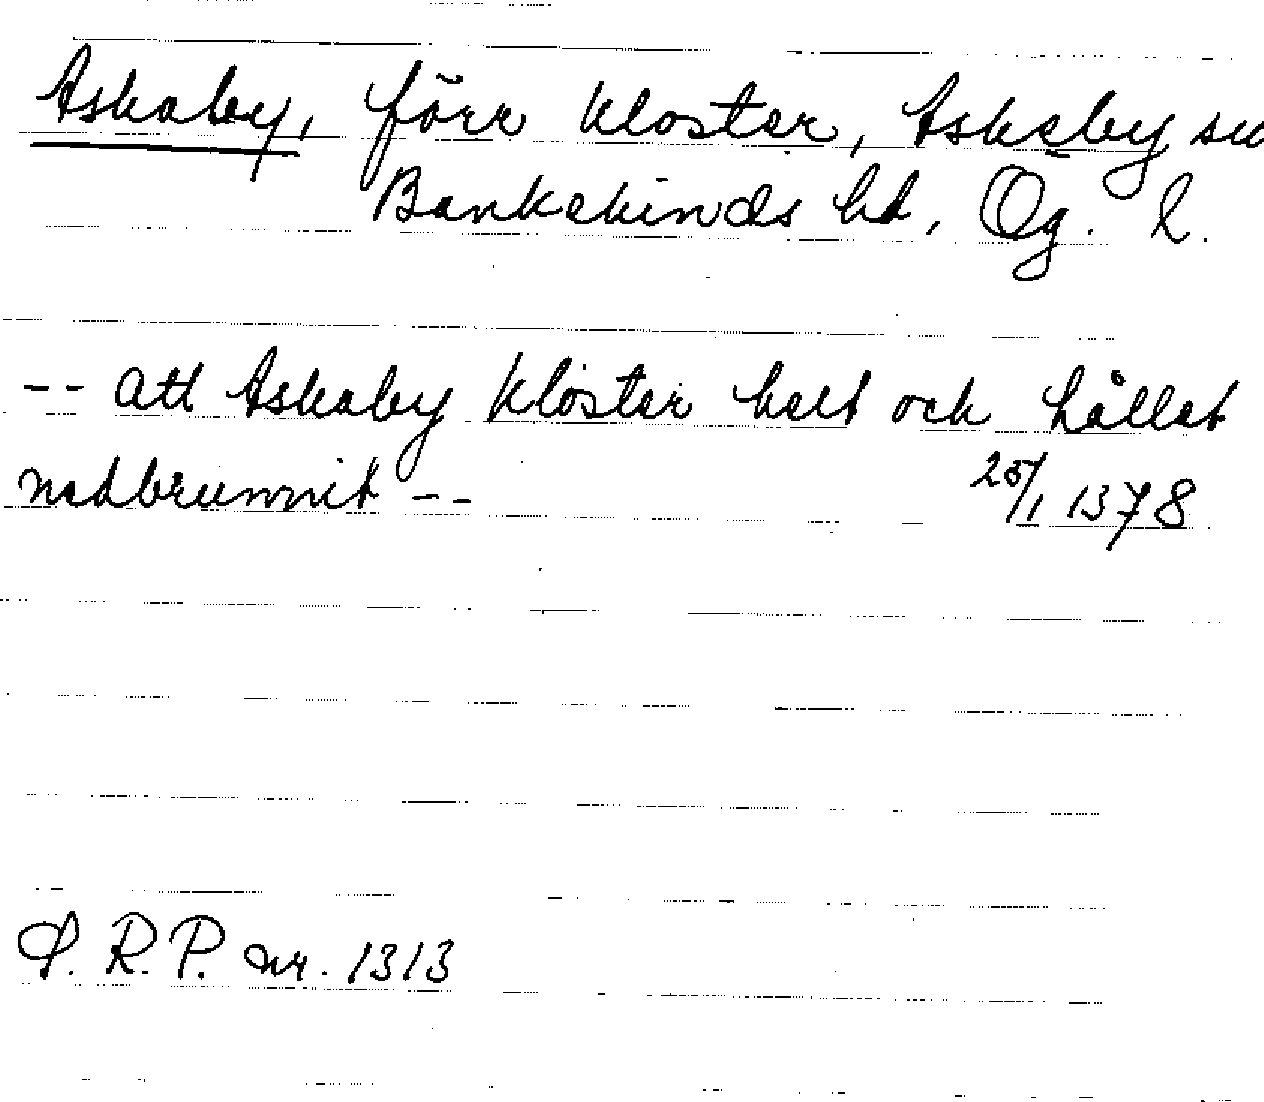 Askaby, förr kloster, Askeby sn
Bankekinds hd, Ög. l.
-- att Askaby kloster helt och hållet
nedbrunnit -- 25/1 1378
S. R. P. nr. 1313